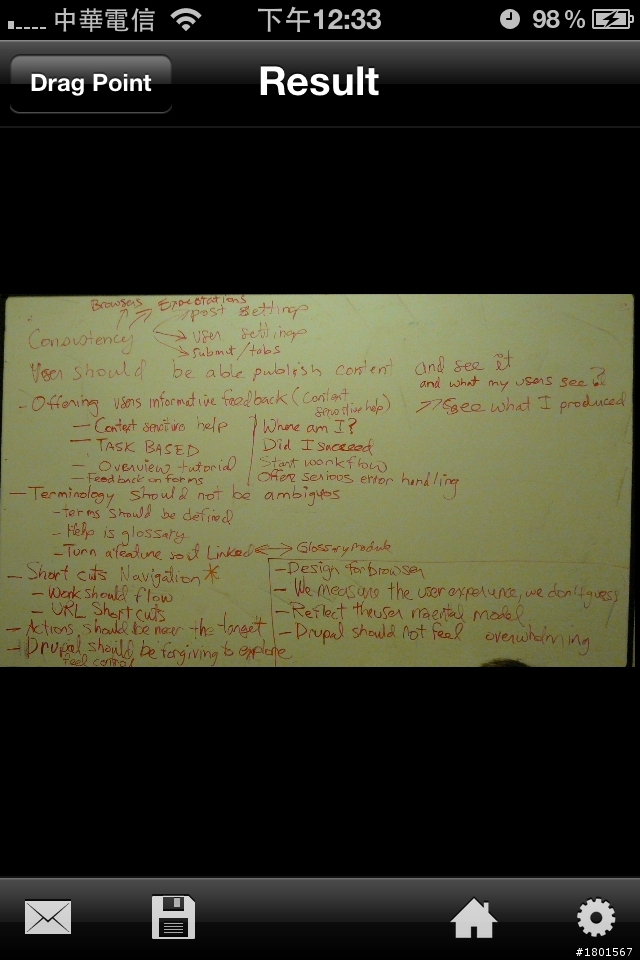 中華電信 下午12:33 98%
Drag Point Result
Browsers Expectations
post settings
Consistency user settings
submit/tabs
User should be able publish content and see it
and what my users see?
- Offering users informative feedback (Content sensitive help) >> See what I produced
- Context sensitive help Where am I?
- TASK BASED Did I succeed
- Overview tutorial Start workflow
- Feedback on forms Offer serious error handling
- Terminology should not be ambigues
- terms should be defined
- Help is glossary
- Turn a feature so it Linked <-> Glossary Module
- Short cuts Navigation *
- Work should flow
- URL Short cuts
- Actions should be near the target
- Drupal should be forgiving to explore
feel control
- Design for browser
- We measure the user experience, we don't guess
- Reflect the user mental model
- Drupal should not feel overwhelming
#1801567